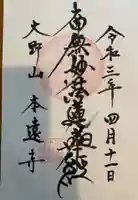 令和三年四月十一日
南無妙法蓮華経
大野山 本遠寺